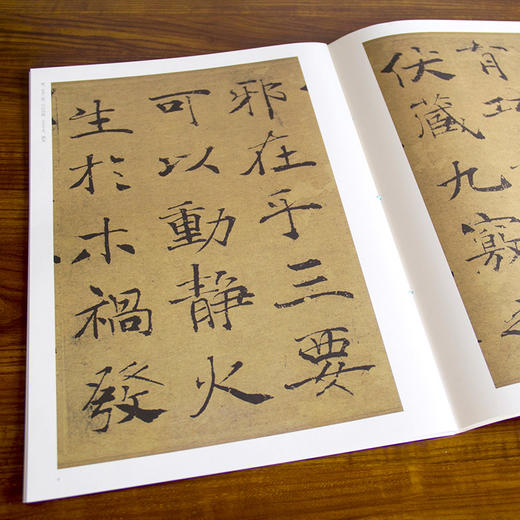 有巧
伏藏九竅之
邪在乎三要
可以動靜火
生於木禍發